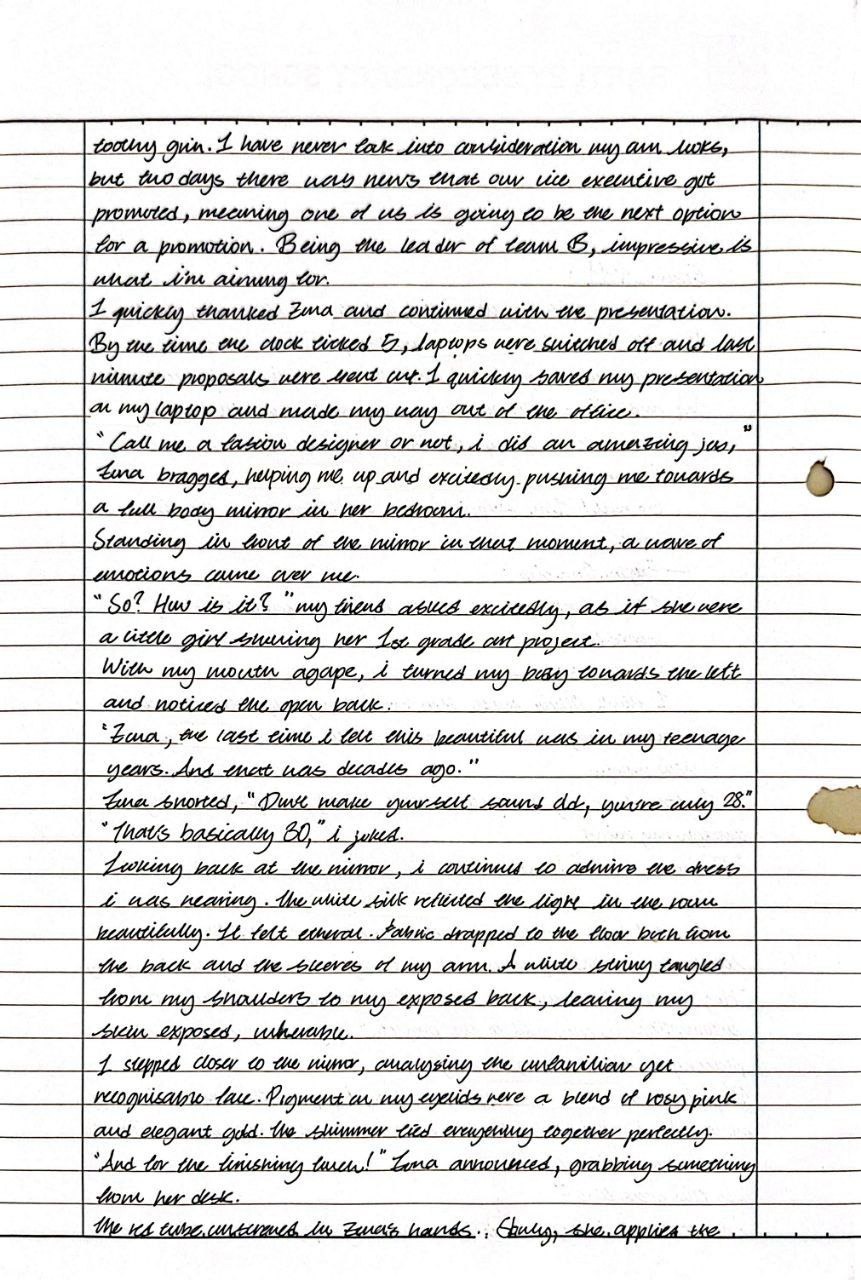 toothy grin. I have never took into consideration my own looks,
but two days there was news that our vice executive got
promoted, meaning one of us is going to be the next option
for a promotion. Being the leader of team B, impressive is
what i'm aiming for.
I quickly thanked Zena and continued with the presentation.
By the time the clock ticked 5, laptops were switched off and last
minute proposals were sent out. I quickly saved my presentation
on my laptop and made my way out of the office.
"Call me a fasion designer or not, i did an amazing job,"
Zena bragged, helping me up and excitedly pushing me towards
a full body mirror in her bedroom.
Standing in front of the mirror in that moment, a wave of
emotions came over me.
"So? How is it?" my friend asked excitedly, as if she were
a little girl showing her 1st grade art project.
With my mouth agape, i turned my body towards the left
and noticed the open back.
"Zena, the last time i felt this beautiful was in my teenage
years. And that was decades ago."
Zena snorted, "Don't make yourself sound old, you're only 28."
"That's basically 30," i joked.
Looking back at the mirror, i continued to admire the dress
i was wearing. The white silk reflected the light in the room
beautifully. It felt ethereal. Fabric drapped to the floor both from
the back and the sleeves of my arm. A white string tangled
from my shoulders to my exposed back, leaving my
skin exposed, vulnerable.
I stepped closer to the mirror, analysing the unfamiliar yet
recognisable face. Pigment on my eyelids were a blend of rosy pink
and elegant gold. The shimmer tied everything together perfectly.
"And for the finishing touch!" Zena announced, grabbing something
from her desk.
The red tube in Zena's hands. Slowly, she applies the